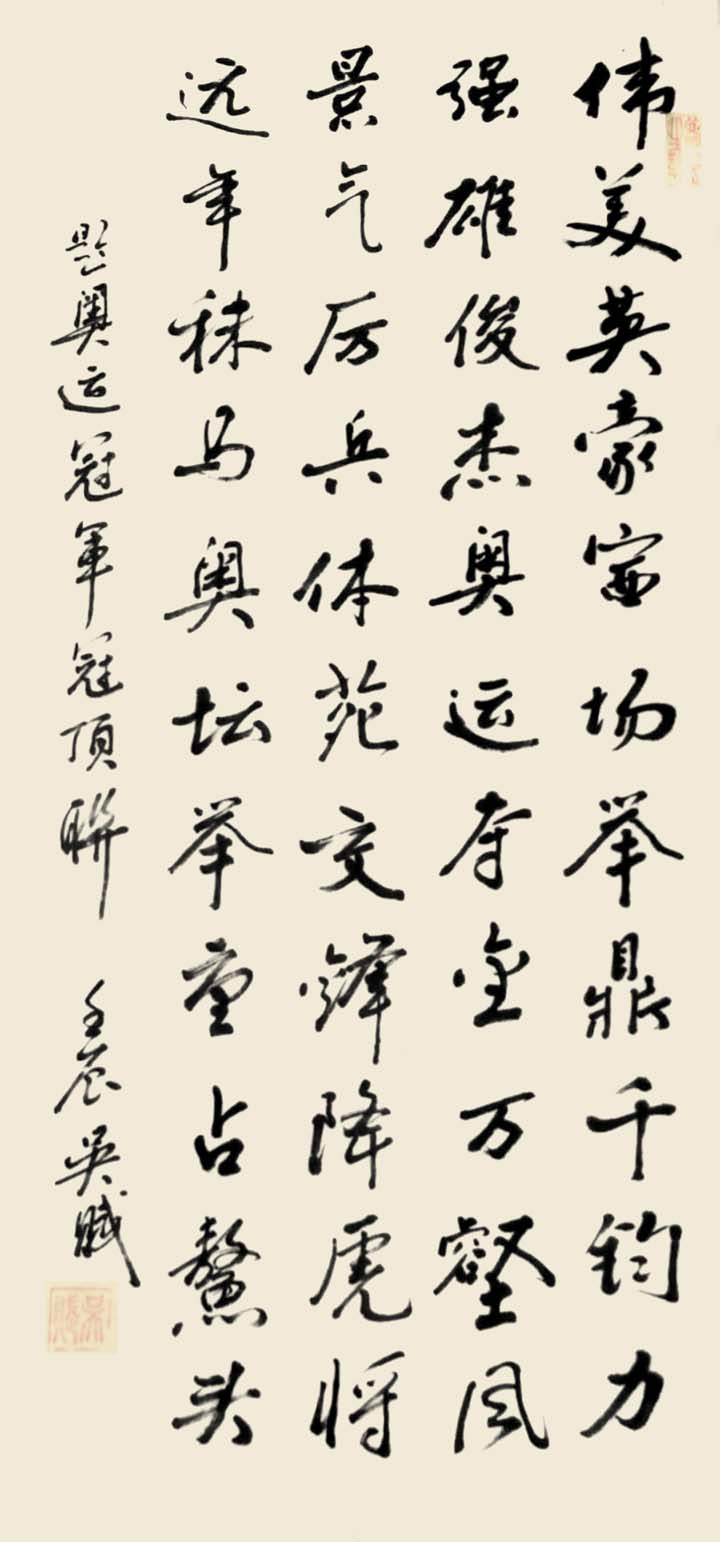 伟美英豪赛场举鼎千钧力
强雄俊杰奥运夺金万壑风
景气厉兵体苑交锋降虎将
远年秣马奥坛举重占鳌头
题奥运冠军冠顶聯 壬辰吴赋